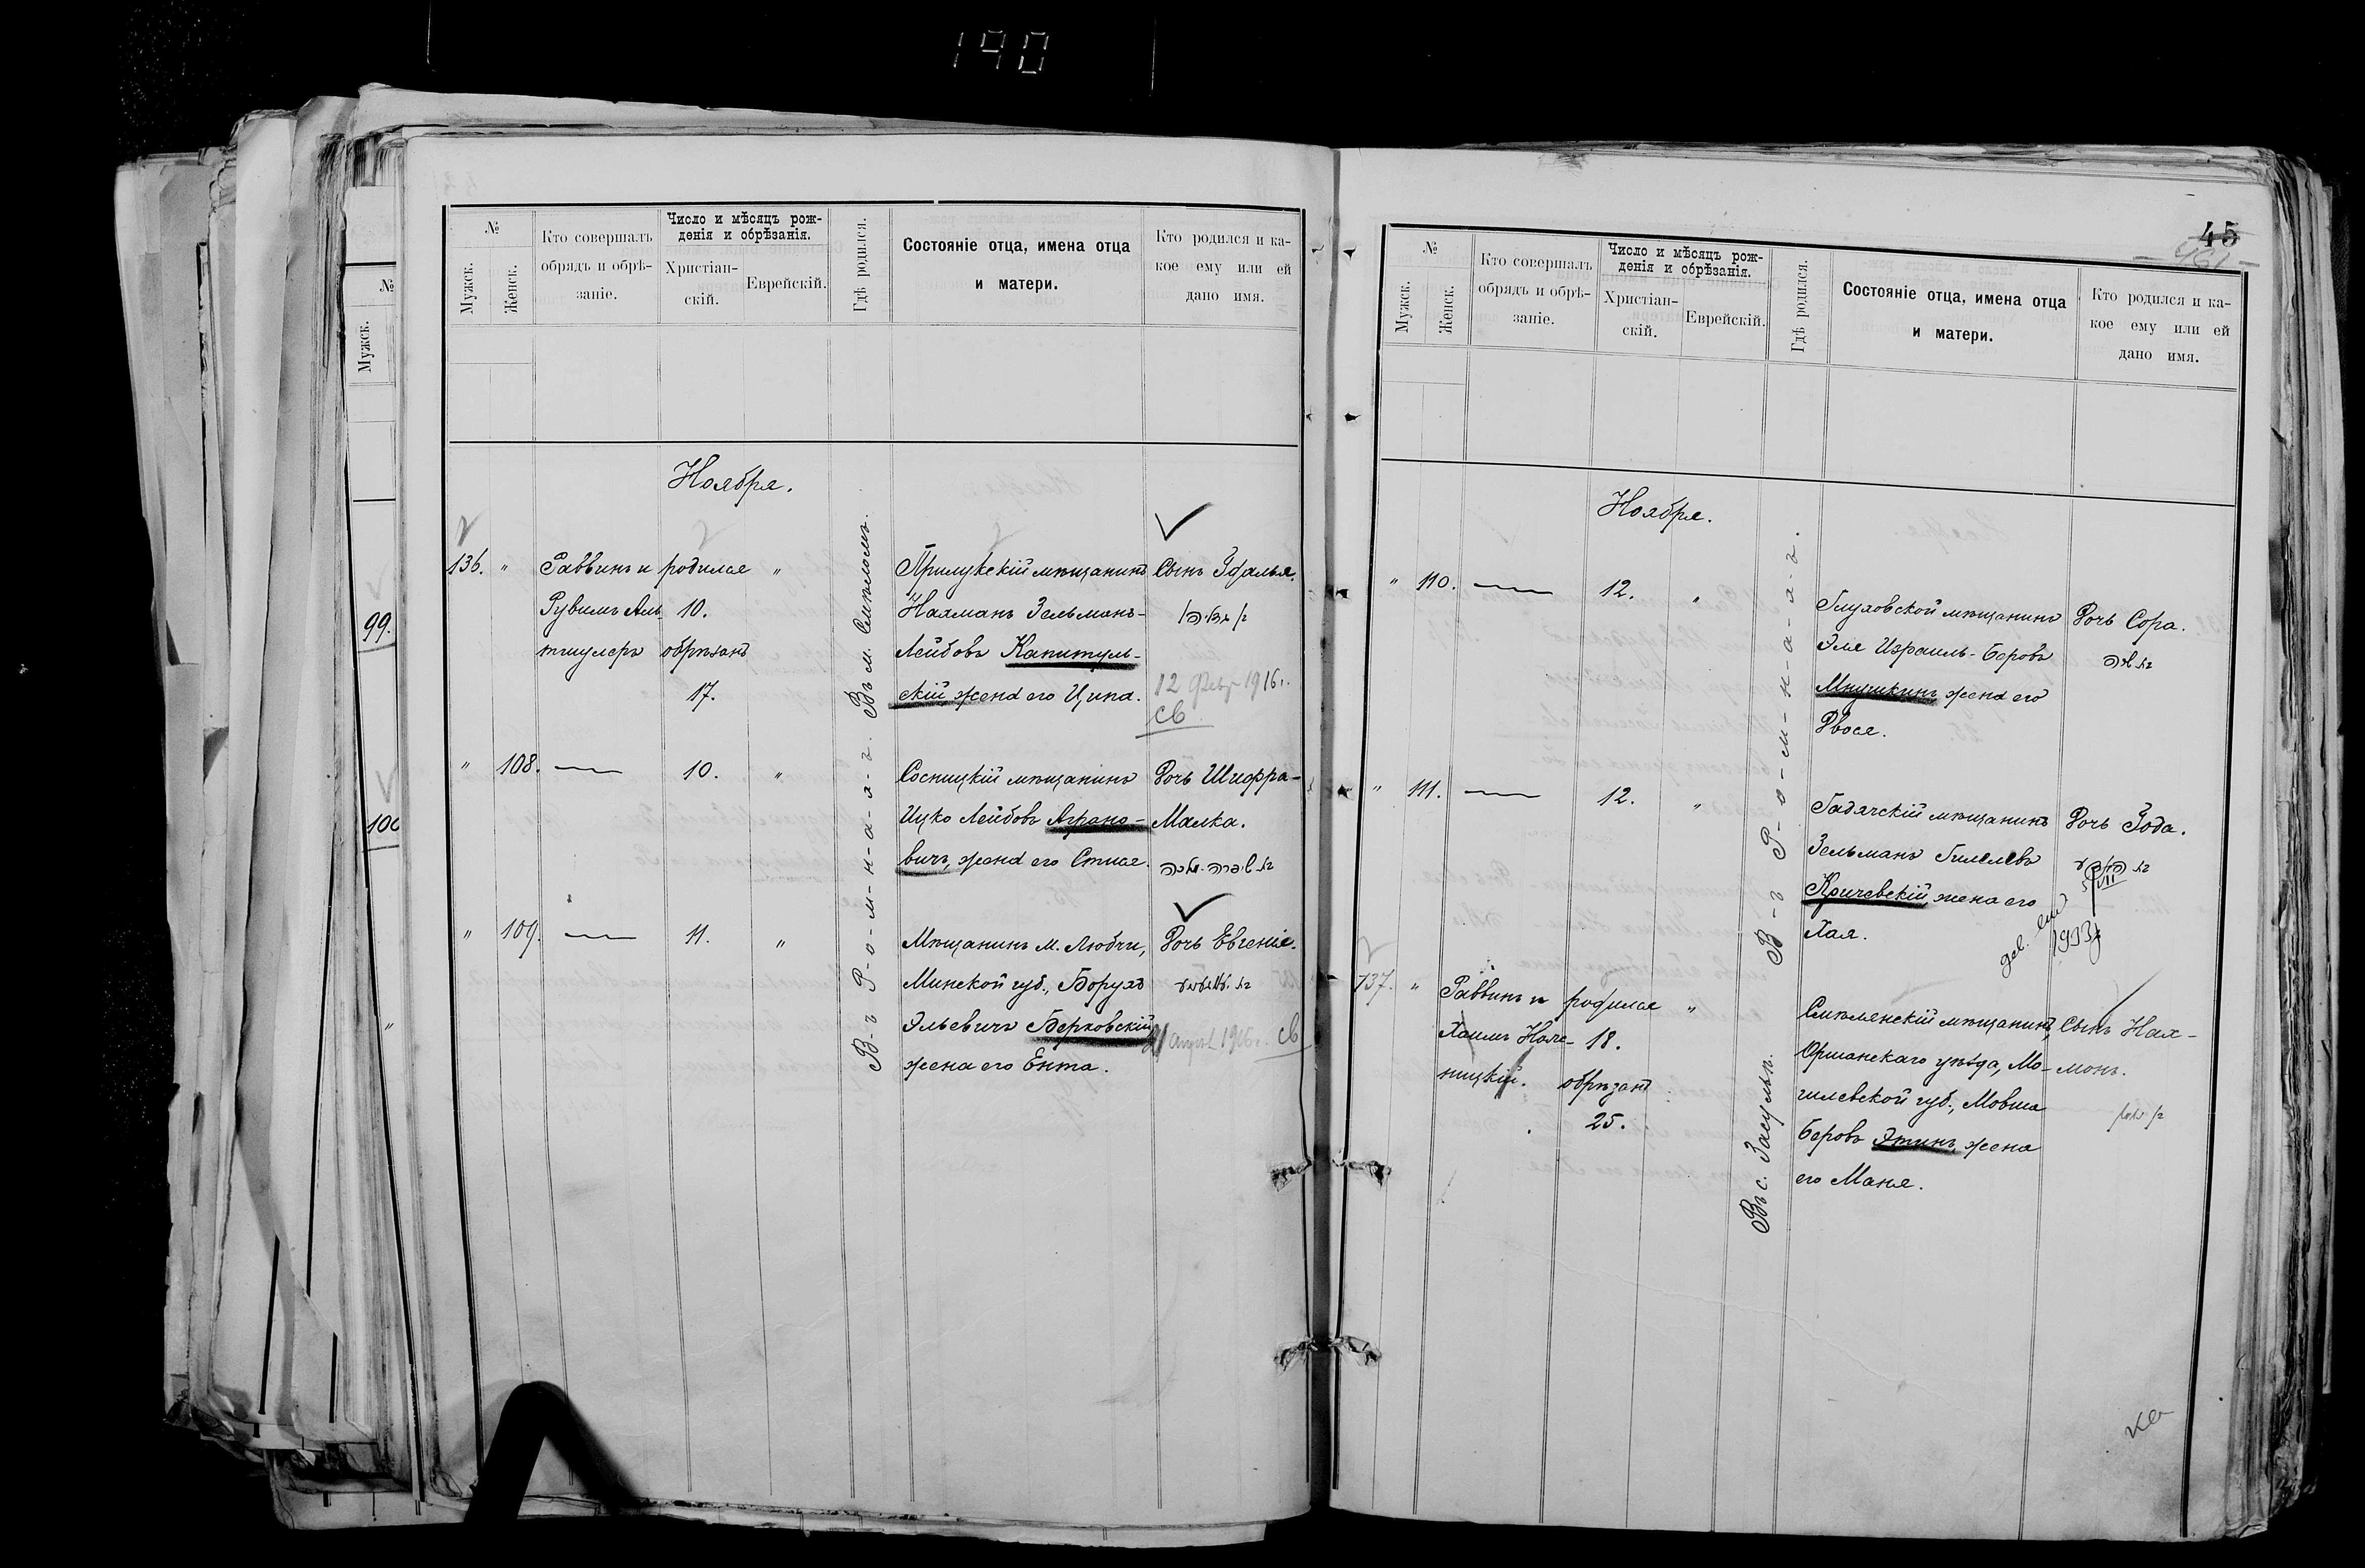 190
№
Мужск.
99.
100
"
№
Мужск.
Женск.
Кто совершалъ
обрядъ и обрѣ-
заніе.
Число и мѣсяцъ рож-
денія и обрѣзанія.
Христіан-
скій.
Еврейскій.
Гдѣ родился.
Состояніе отца, имена отца
и матери.
Кто родился и ка-
кое ему или ей
дано имя.
Ноября.
136. " Раввинъ и родился "
Рувимъ Аль 10.
тшулеръ обрѣзанъ
17.
Въ м. Смѣломъ.
Прилукскій мѣщанинъ
Нахманъ Зельманъ-
Лейбовъ Капитуль-
скій, жена его Ципа.
Сынъ Гдалья.
12 Февр 1916 г.
СЬ
" 108. — 10. "
В-ъ Р-о-м-н-а-х-ъ.
Сосницкій мѣщанинъ
Ицко Лейбовъ Аграно-
вичъ, жена его Стися.
Дочь Шифра-
Малка.
בת שיפרה מלכה
" 109. — 11. "
Мѣщанинъ м. Любчи,
Минской губ., Борухъ
Эльевичъ Берковскій,
жена его Ента.
Дочь Евгенія.
1916 г. СЬ
45
№
Мужск.
Женск.
Кто совершалъ
обрядъ и обрѣ-
заніе.
Число и мѣсяцъ рож-
денія и обрѣзанія.
Христіан-
скій.
Еврейскій.
Гдѣ родился.
Состояніе отца, имена отца
и матери.
Кто родился и ка-
кое ему или ей
дано имя.
Ноября.
" 110. — 12. "
В-ъ Р-о-м-н-а-х-ъ.
Глуховской мѣщанинъ
Эля Израиль-Беровъ
жена его
Двося.
Дочь Сора.
בת שרה
" 111. — 12. "
Гадячскій мѣщанинъ
Зельманъ Гилелевъ
Кричевскій, жена его
Хая.
Дочь Года.
1933
137. " Раввинъ и родился "
Хаимъ 18.
ницкій. обрѣзанъ
25.
Въ с. Засульи.
Смолянскій мѣщанинъ,
Оршанскаго уѣзда, Мо-
гилевской губ., Мовша
Беровъ Этинъ, жена
его Маня.
Сынъ Нах-
монъ.
בן נחמן